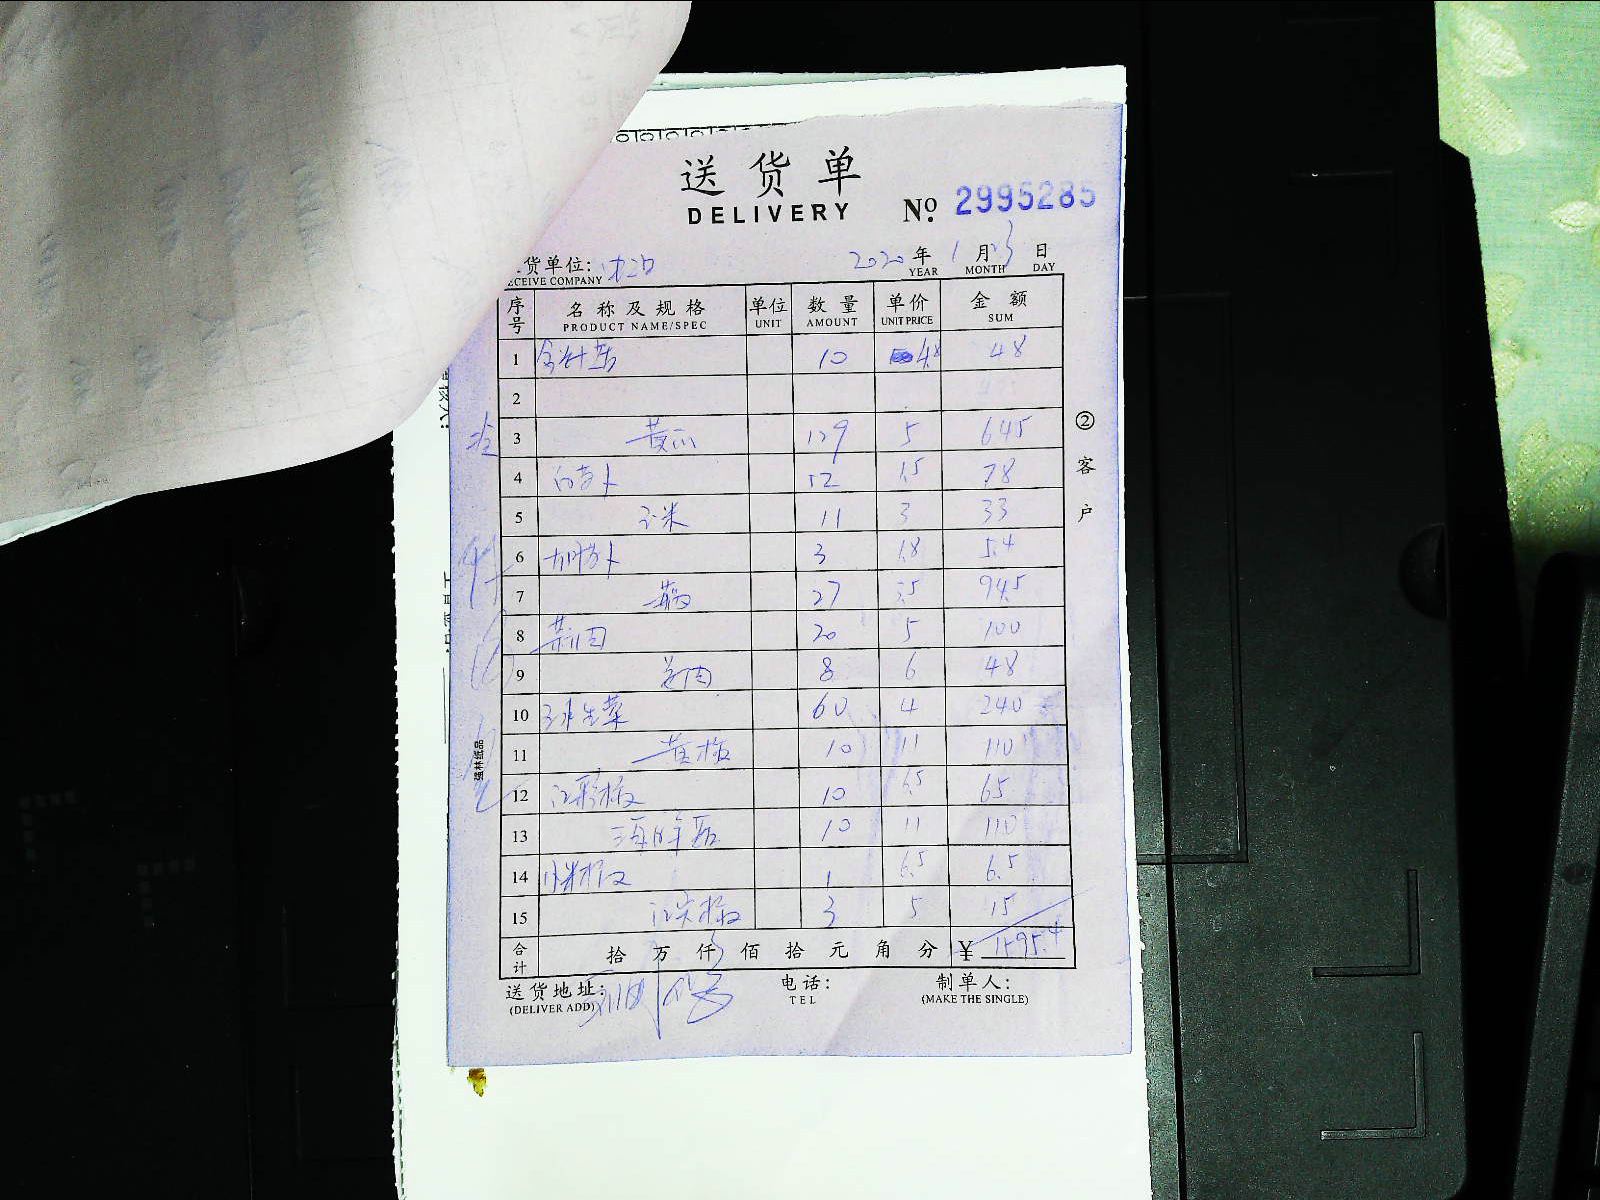 送货单
DELIVERY
No. 2995285
货单位:
ECEIVE COMPANY
2020 年 1 月 23 日
YEAR MONTH DAY
序号 名称及规格 单位 数量 单价 金额
PRODUCT NAME/SPEC UNIT AMOUNT UNIT PRICE SUM
1 金针菇 10 4.8 48
2
3 黄瓜 129 5 645
4 白萝卜 52 1.5 78
5 玉米 11 3 33
6 胡萝卜 3 1.8 5.4
7 27 3.5 94.5
8 20 5 100
9 8 6 48
10 球生菜 60 4 240
11 黄椒 10 11 110
12 红彩椒 10 6.5 65
13 海鲜菇 10 11 110
14 小米椒 1 6.5 6.5
15 红尖椒 3 5 15
合计 拾 万 仟 佰 拾 元 角 分 ¥ 1595.4
送货地址:
(DELIVER ADD)
电话:
TEL
制单人:
(MAKE THE SINGLE)
②客户
强林纸品